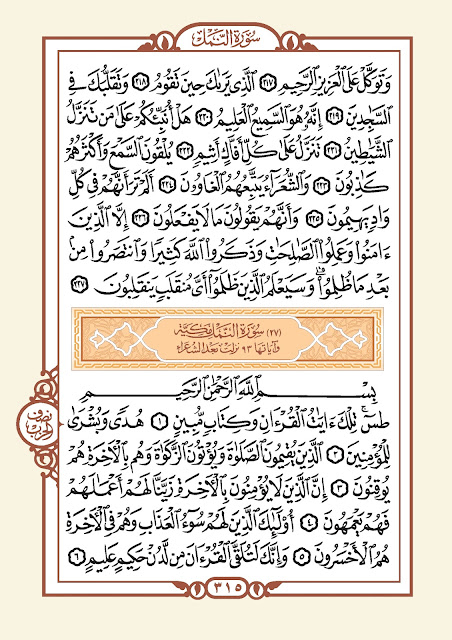 سُورَةُ النَّمْلِ
وَتَوَكَّلْ عَلَى الْعَزِيزِ الرَّحِيمِ ٢١٧ الَّذِي يَرَىٰكَ حِينَ تَقُومُ ٢١٨ وَتَقَلُّبَكَ فِي
السَّٰجِدِينَ ٢١٩ إِنَّهُۥ هُوَ السَّمِيعُ الْعَلِيمُ ٢٢٠ هَلْ أُنَبِّئُكُمْ عَلَىٰ مَن تَنَزَّلُ
الشَّيَٰطِينُ ٢٢١ تَنَزَّلُ عَلَىٰ كُلِّ أَفَّاكٍ أَثِيمٍ ٢٢٢ يُلْقُونَ السَّمْعَ وَأَكْثَرُهُمْ
كَٰذِبُونَ ٢٢٣ وَالشُّعَرَآءُ يَتَّبِعُهُمُ الْغَاوُۥنَ ٢٢٤ أَلَمْ تَرَ أَنَّهُمْ فِي كُلِّ
وَادٍ يَهِيمُونَ ٢٢٥ وَأَنَّهُمْ يَقُولُونَ مَا لَا يَفْعَلُونَ ٢٢٦ إِلَّا الَّذِينَ
ءَامَنُوا۟ وَعَمِلُوا۟ الصَّٰلِحَٰتِ وَذَكَرُوا۟ اللَّهَ كَثِيرًا وَانتَصَرُوا۟ مِنۢ
بَعْدِ مَا ظُلِمُوا۟ ۗ وَسَيَعْلَمُ الَّذِينَ ظَلَمُوٓا۟ أَيَّ مُنقَلَبٍ يَنقَلِبُونَ ٢٢٧
(٢٧) سُورَةُ النَّمْلِ مَكِّيَّة
وَآيَاتُهَا ٩٣ نَزَلَتْ بَعْدَ الشُّعَرَاء
بِسْمِ اللَّهِ الرَّحْمَٰنِ الرَّحِيمِ
طسٓ ۚ تِلْكَ ءَايَٰتُ الْقُرْءَانِ وَكِتَابٍ مُّبِينٍ ١ هُدًى وَبُشْرَىٰ
نصف الحزب
لِلْمُؤْمِنِينَ ٢ الَّذِينَ يُقِيمُونَ الصَّلَوٰةَ وَيُؤْتُونَ الزَّكَوٰةَ وَهُم بِالْءَاخِرَةِ هُمْ
يُوقِنُونَ ٣ إِنَّ الَّذِينَ لَا يُؤْمِنُونَ بِالْءَاخِرَةِ زَيَّنَّا لَهُمْ أَعْمَٰلَهُمْ
فَهُمْ يَعْمَهُونَ ٤ أُو۟لَٰٓئِكَ الَّذِينَ لَهُمْ سُوٓءُ الْعَذَابِ وَهُمْ فِي الْءَاخِرَةِ
هُمُ الْأَخْسَرُونَ ٥ وَإِنَّكَ لَتُلَقَّى الْقُرْءَانَ مِن لَّدُنْ حَكِيمٍ عَلِيمٍ ٦
٣١٥